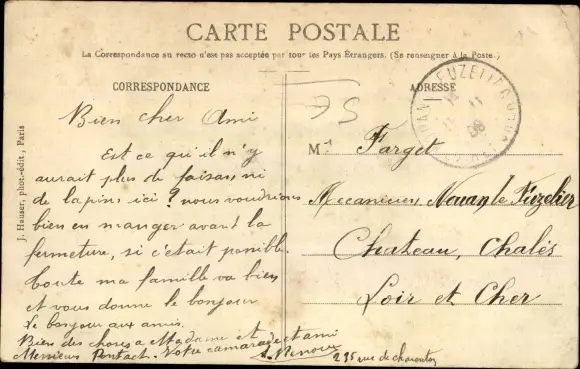 CARTE POSTALE
La Correspondance au recto n'est pas acceptée par tour les Pays Étrangers. (Se renseigner à la Poste.)
CORRESPONDANCE
Bien cher Ami
Est ce qu'il n'y
aurait plus de faisan, ni
de lapins ici ? nous voudrions
bien en manger avant la
fermeture, si c'était possible.
toute ma famille va bien
et vous donne le bonjour
Le bonjour aux amis.
Bien des choses a Madame et
Messieurs Pontact. Votre camarade et ami
A. Renoux
235 rue de charenton
ADRESSE
75
Mr Farget
Mecanicien, Nouan le Fuzelier
Chateau, Chalès
Loir et Cher
J. Hauser, phot.-édit., Paris